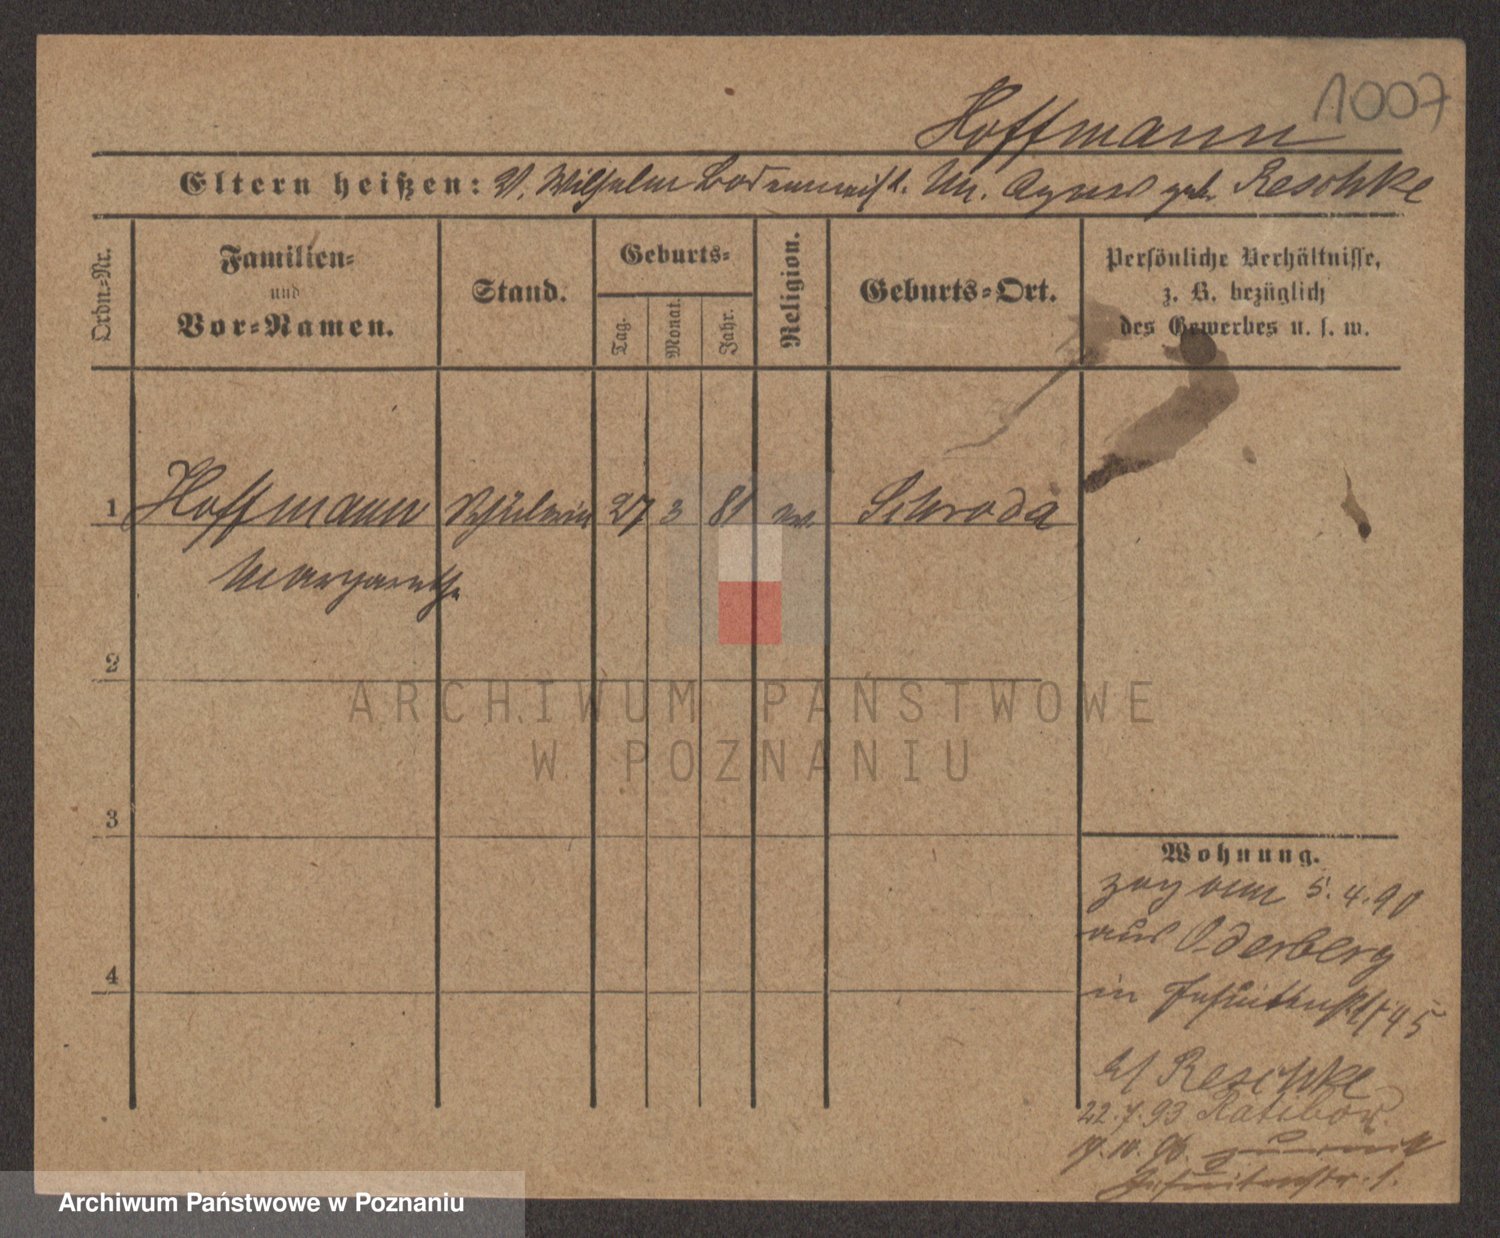 1007
Hoffmann
Eltern heißen: V. Wilhelm Bodenmeist. M. Agnes geb. Reschke
Ordn.-Nr.
Familien-
und
Vor-Namen.
Stand.
Geburts-
Tag.
Monat.
Jahr.
Religion.
Geburts-Ort.
Persönliche Verhältnisse,
z. B. bezüglich
des Gewerbes u. s. w.
1 Hoffmann Schülerin 27 3 81 ev. Schroda
Margarethe
2
ARCHIWUM PAŃSTWOWE
W POZNANIU
3
4
Wohnung.
zog am 5.4.90
aus Oderberg
in Jesuitenstr 5
b/ Reschke
22.7.93 Ratibor
10. 96. zurück
Jesuitenstr.
Archiwum Państwowe w Poznaniu